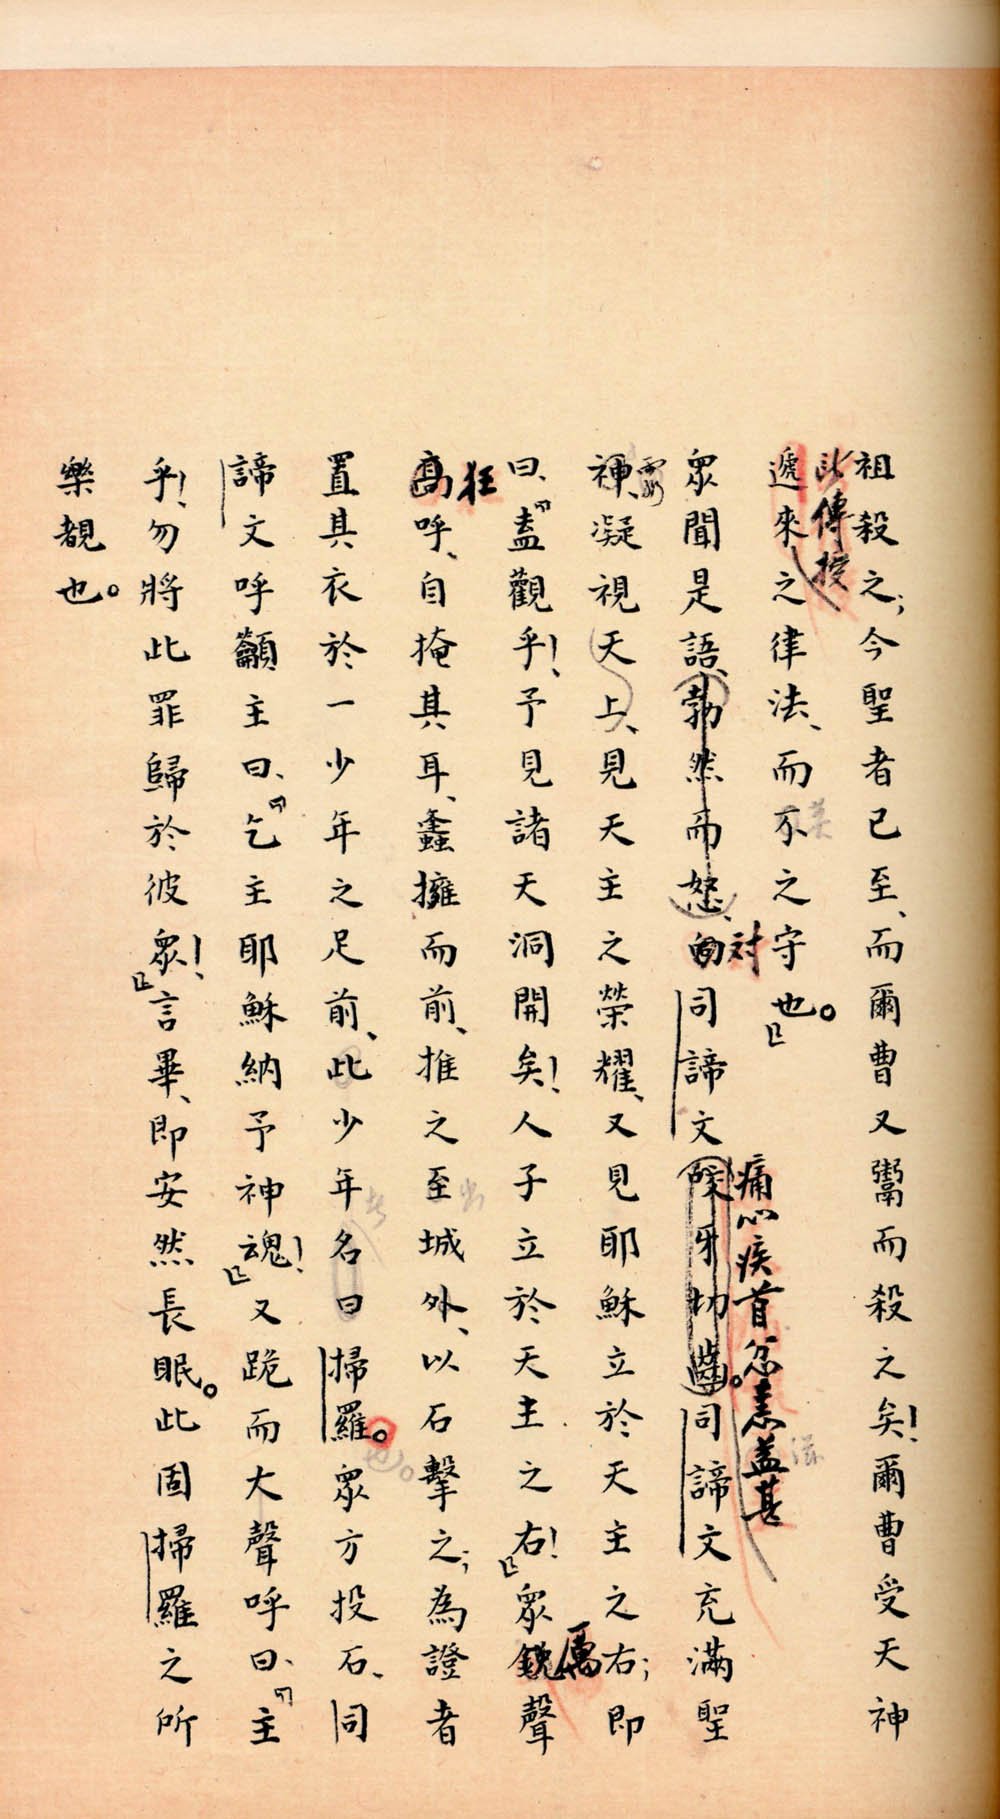 祖殺之；今聖者已至、而爾曹又鬻而殺之矣！爾曹受天神
此傳授
遞來之律法、而不之守也。」
眾聞是語、勃然而怒、向司諦文咬牙切齒。司諦文充滿聖
對
痛心疾首忿恚益甚
神、凝視天上、見天主之榮耀、又見耶穌立於天主之右；即
靈
曰、「盍觀乎！予見諸天洞開矣！人子立於天主之右！」眾銳聲
厲
高呼、自掩其耳、蠭擁而前、推之至城外、以石擊之；為證者
狂
置其衣於一少年之足前、此少年名曰掃羅。眾方投石、司
諦文呼籲主曰、「乞主耶穌納予神魂！」又跪而大聲呼曰、「主
乎！勿將此罪歸於彼眾！」言畢、即安然長眠。此固掃羅之所
樂覩也。